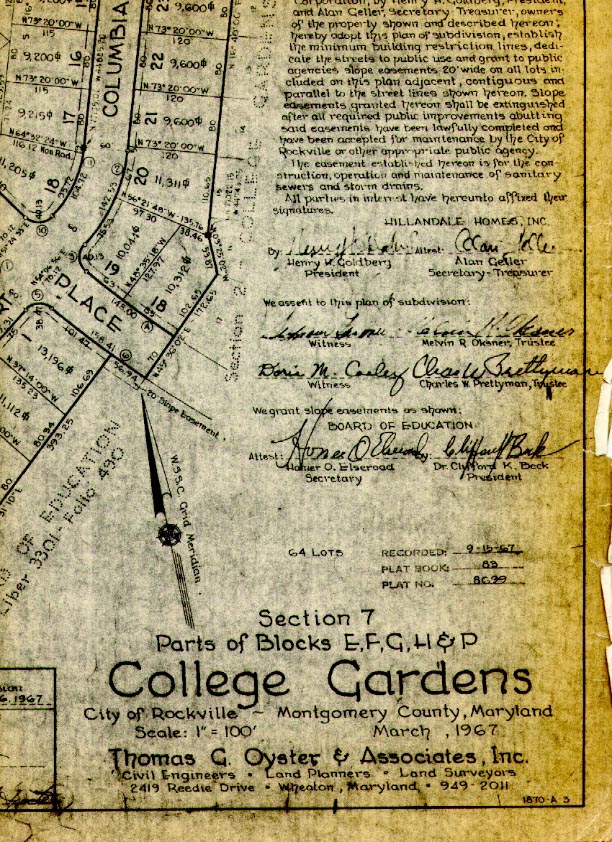 Corporation, by Henry W. Goldberg, President,
and Alan Geller, Secretary-Treasurer, owners
of the property shown and described hereon,
hereby adopt this plan of subdivision, establish
the minimum building restriction lines, dedi-
cate the streets to public use and grant to public
agencies slope easements 20' wide on all lots in-
cluded on this plan adjacent, contiguous and
parallel to the street lines shown hereon. Slope
easements granted hereon shall be extinguished
after all required public improvements abutting
said easements have been lawfully completed and
have been accepted for maintenance by the City of
Rockville or other appropriate public agency.
The easement established hereon is for the con-
struction, operation and maintenance of sanitary
sewers and storm drains.
All parties in interest have hereunto affixed their
signatures.
HILLANDALE HOMES, INC.
By: Attest:
Henry W. Goldberg Alan Geller
President Secretary-Treasurer
We assent to this plan of subdivision:
Witness Melvin R. Oksner, Trustee
Doris M. Cooley Chas W Prettyman
Witness Charles W. Prettyman, Trustee
We grant slope easements as shown:
BOARD OF EDUCATION
Attest: By:
Homer O. Elseroad Dr. Clifford K. Beck
Secretary President
64 LOTS
RECORDED: 9-15-67
PLAT BOOK: 83
PLAT NO. 8699
Section 7
Parts of Blocks E, F, G, H & P
College Gardens
City of Rockville ~ Montgomery County, Maryland
Scale: 1" = 100' March, 1967
Thomas G. Oyster & Associates, Inc.
Civil Engineers • Land Planners • Land Surveyors
2419 Reedie Drive • Wheaton, Maryland • 949-2011
1870-A-3
COLUMBIA
PLACE
23 9,600⌽
N73°20'00"W
120
22 9,600⌽
N73°20'00"W
120
21 9,600⌽
N73°20'00"W
120
20 11,311⌽
N56°21'48"W-135.76
97.30 38.46
19
18 10,312⌽
127.97
145.00
9,200⌽
N73°20'00"W
115
17 9,215⌽
N64°32'24"W
116.12 Non Rad.
11,205⌽
18
16
13,196⌽
N37°14'00"W
135.23
11,112⌽
106.69
393.25
101.47
20' Slope Easement
W.S.S.C. Grid Meridian
OF EDUCATION
Liber 3301 - Folio 490
Section 2 - COLLEGE GARDENS
1967